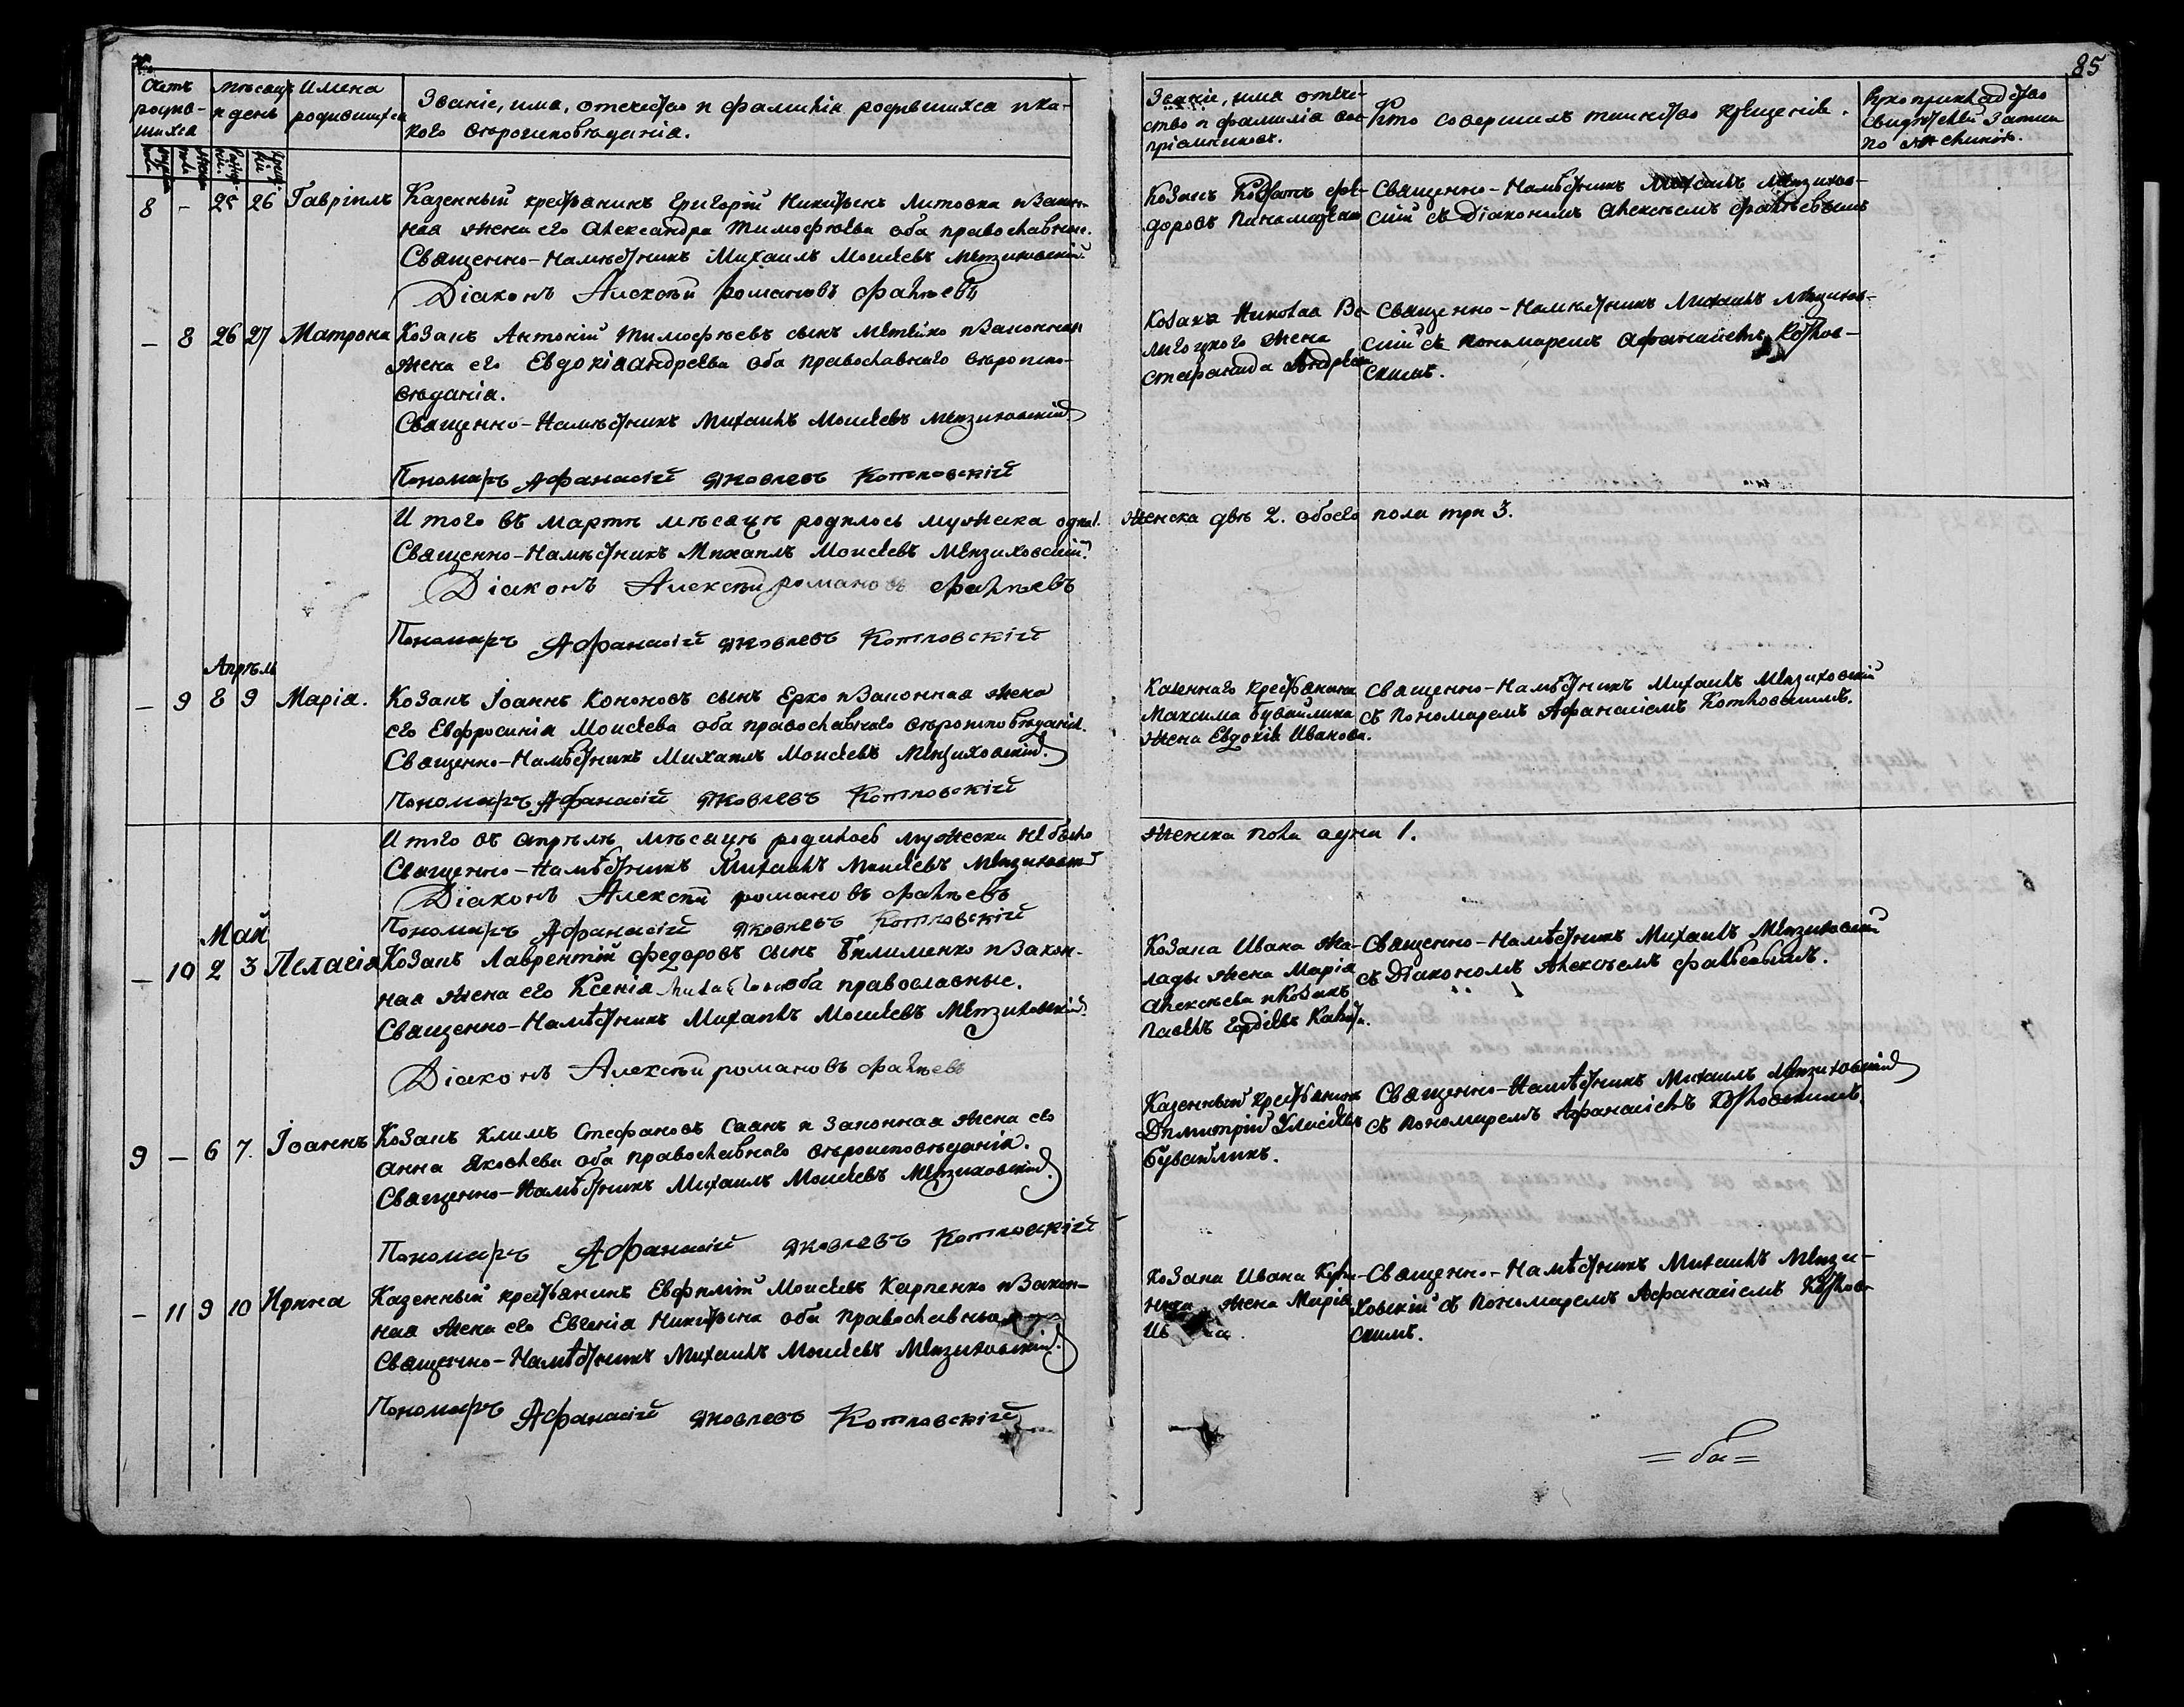 85
Счетъ родив-шихся
Мѣсяцъ и день
Имена родившихся
Званіе, имя, отечество и фамилія родившихся и ка-
кого вѣроисповѣданія.
Званіе, имя отече-
ство и фамилія вос-
пріемниковъ.
Кто совершилъ таинство крещенія.
Рукоприкладство
свидѣтелей записи
по желанію.
8 - 25 26 Гавріилъ
Казенный крестьянинъ Григорій Никитинъ Литовка и закон-
ная жена его Александра Тимофѣева оба православные.
Священно-Намѣстникъ Михаилъ Моисеевъ
Діаконъ Алексѣй Романовъ Фалѣевъ
Козакъ Кодратъ Фео-
доровъ
Священно-Намѣстникъ Михаилъ
съ Діакономъ Алексѣемъ Фалѣевымъ
- 8 26 27 Матрона
Козакъ Антоній Тимофѣевъ сынъ и законная
жена его Евдокіа Андреева оба православнаго вѣроиспо-
вѣданія.
Священно-Намѣстникъ Михаилъ Моисеевъ
Пономарь Афанасій Яковлевъ Котловскій
Козака Николая Ве-
жена
Андреева
Священно-Намѣстникъ Михаилъ
съ пономаремъ Афанасіемъ Котлов-
скимъ.
И того въ мартѣ мѣсяцѣ родилось мужеска одна 1.
женска двѣ 2. обоего пола три 3.
Священно-Намѣстникъ Михаилъ Моисеевъ
Діаконъ Алексѣй Романовъ Фалѣевъ
Пономарь Афанасій Яковлевъ Котловскій
Апрѣль
- 9 8 9 Марія.
Козакъ Іоаннъ Кононовъ сынъ Ерко и законная жена
его Евфросинія Моисеева оба православнаго вѣроисповѣданія.
Священно-Намѣстникъ Михаилъ Моисеевъ
Пономарь Афанасій Яковлевъ Котловскій
Казеннаго крестьянина
Максима Бувайлика
жена Евдокія Иванова.
Священно-Намѣстникъ Михаилъ
съ пономаремъ Афанасіемъ Котловскимъ.
И того въ апрѣлѣ мѣсяцѣ родилось мужеска не было
женска пола одна 1.
Священно-Намѣстникъ Михаилъ Моисеевъ
Діаконъ Алексѣй Романовъ Фалѣевъ
Пономарь Афанасій Яковлевъ Котловскій
Май
- 10 2 3 Пелагія
Козакъ Лаврентій Федоровъ сынъ Билименко и закон-
ная жена его Ксенія оба православные.
Священно-Намѣстникъ Михаилъ Моисеевъ
Діаконъ Алексѣй Романовъ Фалѣевъ
Козака Ивана
жена Марія
Алексѣева и козакъ
Павелъ
Священно-Намѣстникъ Михаилъ
съ Діакономъ Алексѣемъ Фалѣевымъ.
9 - 6 7. Іоаннъ
Козакъ Климъ Стефановъ Саанъ и законная жена его
Анна Яковлева оба православнаго вѣроисповѣданія.
Священно-Намѣстникъ Михаилъ Моисеевъ
Пономарь Афанасій Яковлевъ Котловскій
Казенный крестьянинъ
Димитрій
Бувайликъ.
Священно-Намѣстникъ Михаилъ
съ пономаремъ Афанасіемъ Котловскимъ.
- 11 9 10 Ирина
Казенный крестьянинъ Евфимій Моисеевъ Карпенко и закон-
ная жена его Евгенія Никитина оба православные
Священно-Намѣстникъ Михаилъ Моисеевъ
Пономарь Афанасій Яковлевъ Котловскій
Козака Ивана
жена Марія
Священно-Намѣстникъ Михаилъ
съ пономаремъ Афанасіемъ Котлов-
скимъ.